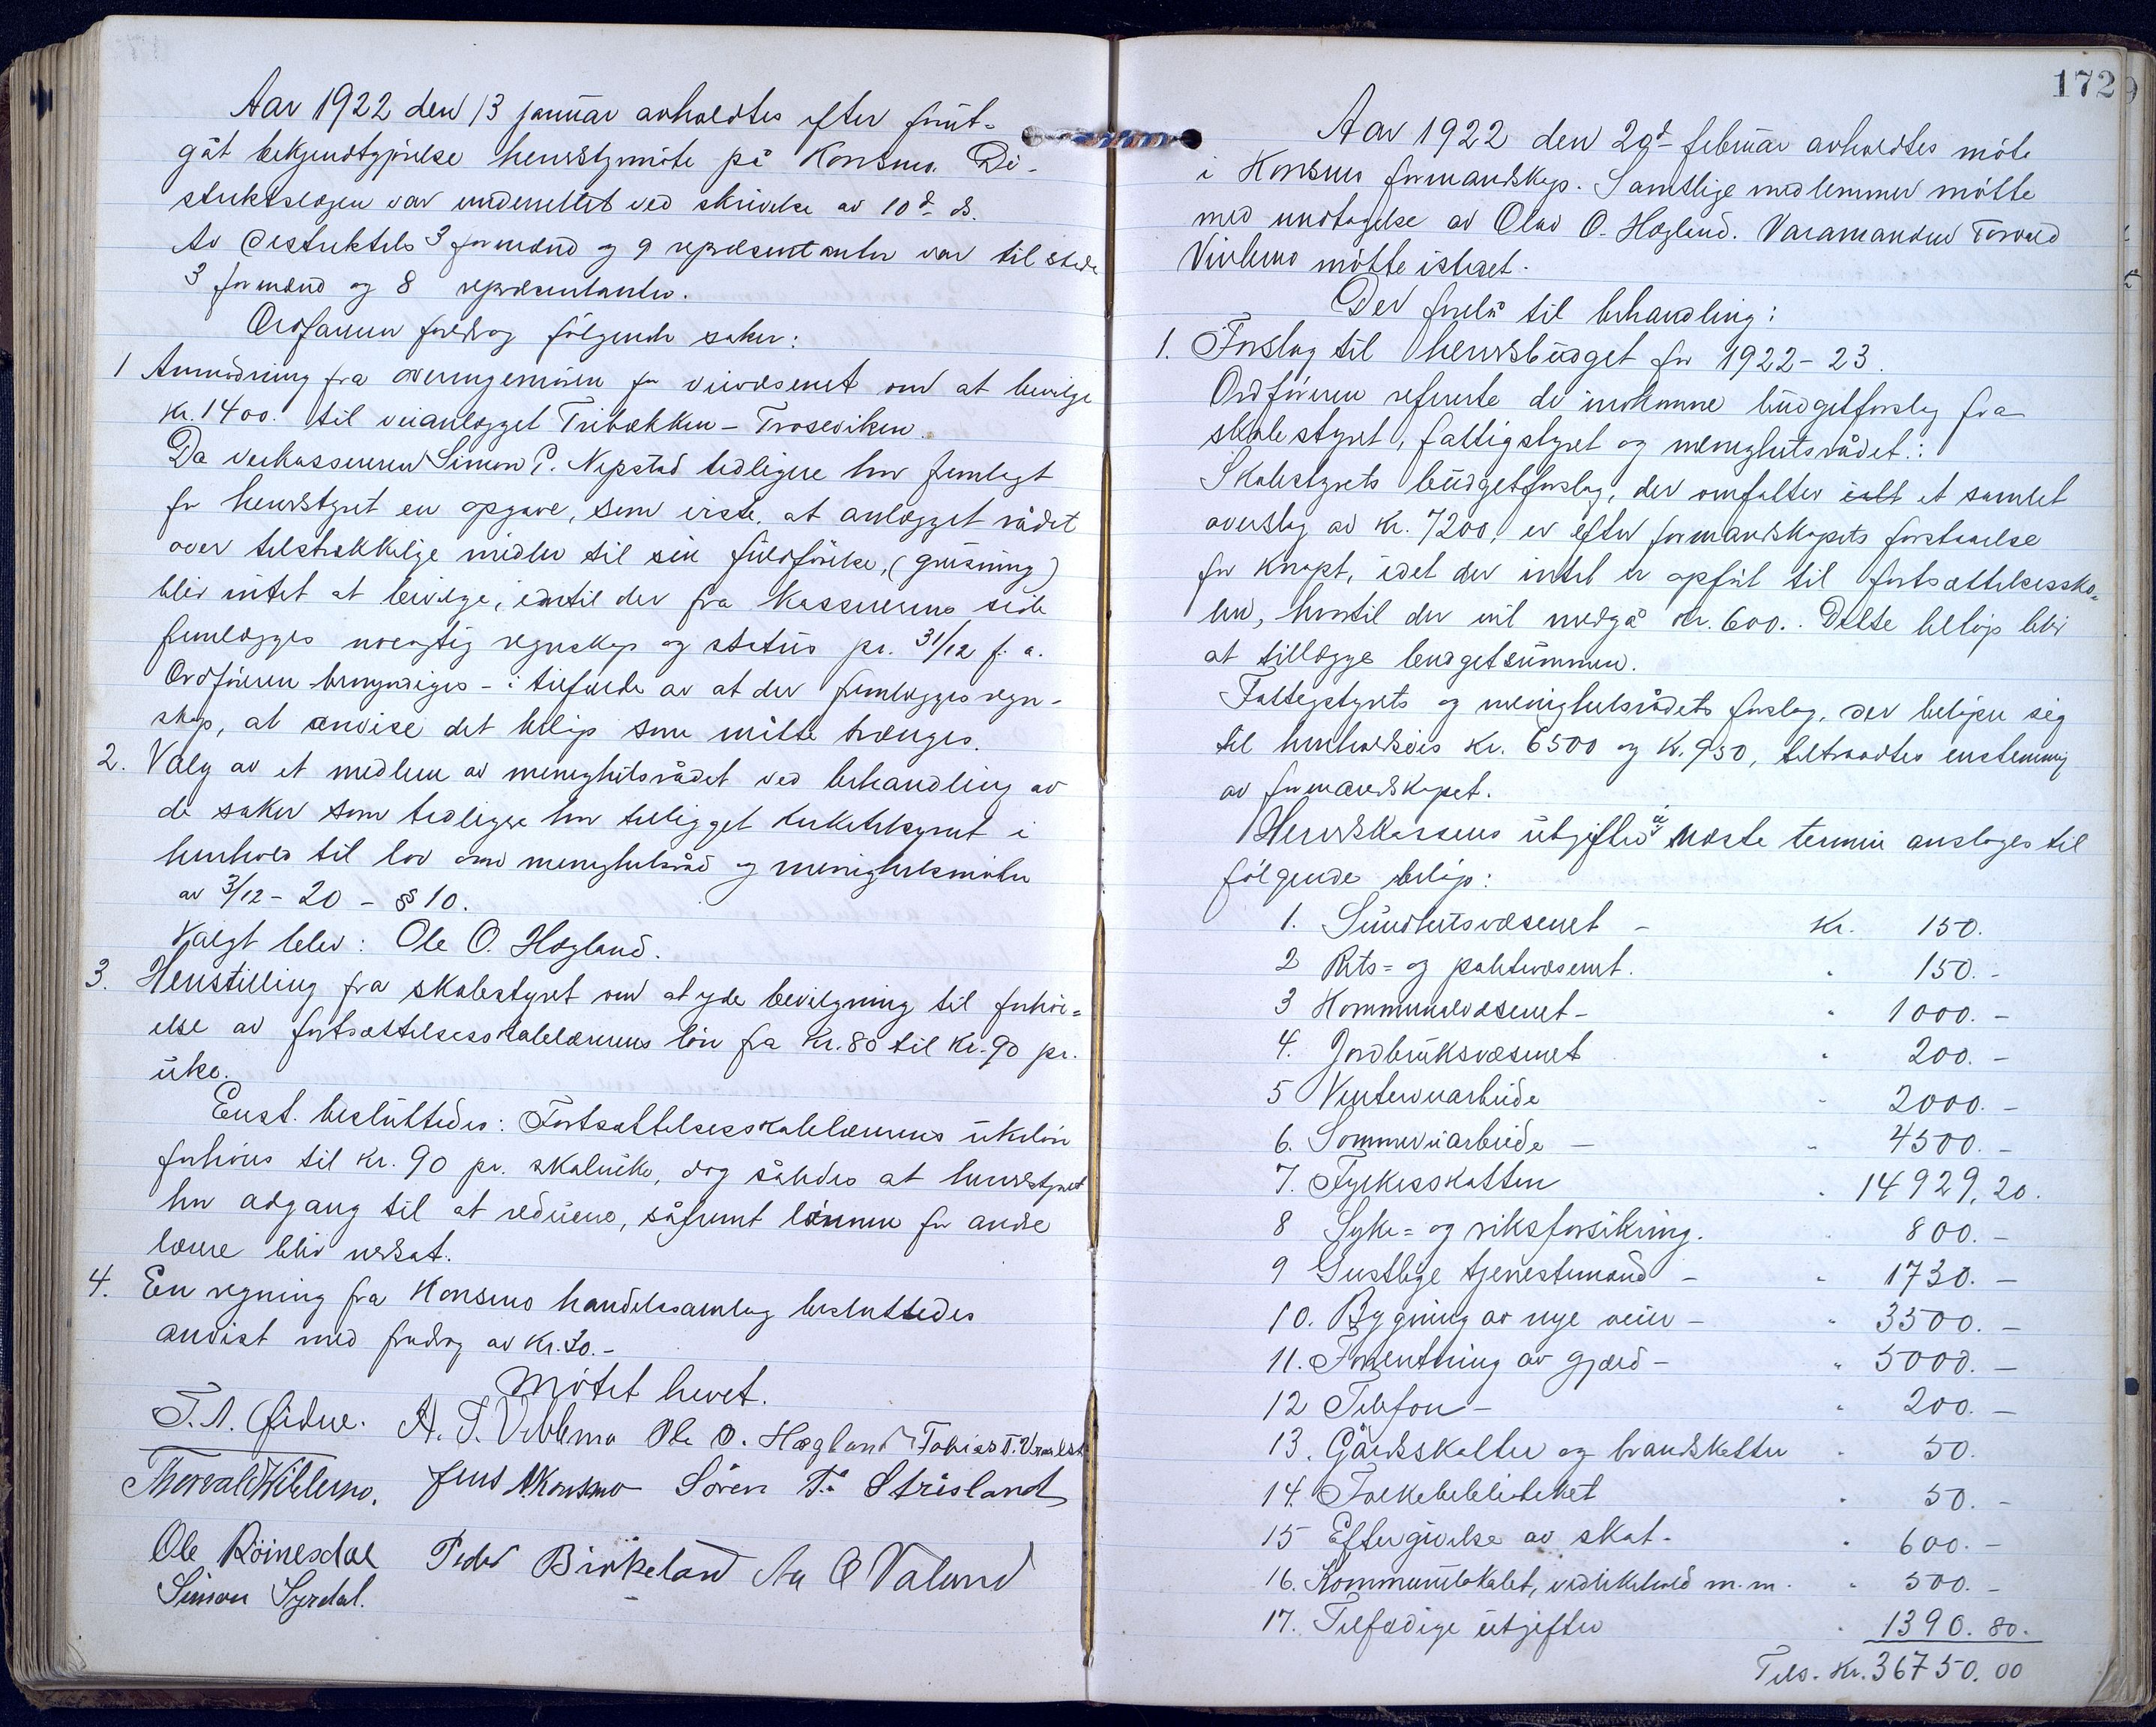 Aar 1922 den 13 januar avholdtes efter forut-
gåt bekjendtgjørelse herredsmøte på Konsmo. Di-
striktslægen var underrettet ved skrivelse av 10de ds.
Av distriktets 3 formænd og 9 repræsentanter var tilstede
3 formænd og 8 repræsentanter.
Ordføreren foredrog følgende saker:
1 Anmodning fra overingeniøren for veivæsenet om at bevilge
kr. 1400. til veianlægget Tribækken - Troseviken.
Da veikassereren Simon P. Nepstad tidligere har fremlagt
for herredstyret en opgave, som viste, at anlægget rådet
over tilstrækkelige midler til sin fuldførelse, (grusning)
blir intet at bevilge, indtil der fra kassererens side
fremlægges nøiagtig regnskap og status pr. 31/12 f. a.
Ordføreren bemyndiges - i tilfælde av at der fremlægges regn-
skap, at anvise det beløp som måtte trænges.
2. Valg av et medlem av menighetsrådet ved behandling av
de saker som tidligere har tilligget kirketilsynet i
henhold til lov om menighetsråd og menighetsmøter
av 3/12 - 20 - § 10.
Valgt blev: Ole O. Hægland.
3. Henstilling fra skolestyret om at yde bevilgning til forhøi=
else av fortsættelsesskolelærerens løn fra kr. 80 til kr. 90 pr.
uke.
Enst. besluttedes: Fortsættelsesskolelærerens ukeløn
forhøies til kr. 90 pr. skoleuke, dog således at herredstyret
har adgang til at reducere, såfremt lønnen for andre
lærere blir nedsat.
4. En regning fra Konsmo handelssamlag besluttedes
anvist med fradrag av kr. 30.-
Møtet hevet.
T. A. Øidne. H. T. Viblemo Ole O. Hægland Tobias T.
Thorvald Viblemo. Jens Konsmo Sören T. Strisland
Ole Röinesdal Peder Birkeland Aa O Valand
Simon Syrdal.
172
Aar 1922 den 20de februar avholdtes møte
i Konsmo formandskap. Samtlige medlemmer møtte
med undtagelse av Olav O. Hægland. Varamanden Torvald
Viblemo møtte istedet.
Der forelå til behandling:
1. Forslag til herredsbudget for 1922 - 23.
Ordføreren refererte de indkomne budgetforslag fra
skolestyret, fattigstyret og menighetsrådet.:
Skolestyrets budgetforslag, der omfatter ialt et samlet
overslag av kr. 7200, er efter formandskapets forståelse
for knapt, idet der intet er opført til fortsættelsessko=
len, hvortil der vil medgå kr. 600.. Dette beløp blir
at tillægge budgetsummen.
Fattigstyrets og menighetsrådets forslag, der beløper sig
til henholdsvis kr. 6500 og kr. 950, tiltraadtes enstemmig
av formandskapet.
Herredskassens utgifter i næste termin anslages til
følgende beløp:
1. Sundhetsvæsenet - kr. 150.
2 Rets= og politivæsenet. " 150.-
3 Kommunevæsenet - " 1000.-
4. Jordbruksvæsenet " 200.-
5 Vinterveiarbeide " 2000.-
6. Sommerveiarbeide - " 4500.-
7. Fylkesskatten " 14929,20.
8 Syke= og riksforsikring. " 800.-
9 Geistlige tjenestemænd - " 1730.-
10. Bygning av nye veier - " 3500.-
11. Forrentning av gjæld - " 5000.-
12 Telefon - " 200.-
13. Gårdsskatter og brandskatter " 50.
14. Folkebiblioteket " 50.-
15 Eftergivelse av skat - " 600.-
16. Kommunelokalet, vedlikehold m.m. " 500.-
17. Tilfældige utgifter " 1390.80.
Tils. kr. 36750.00